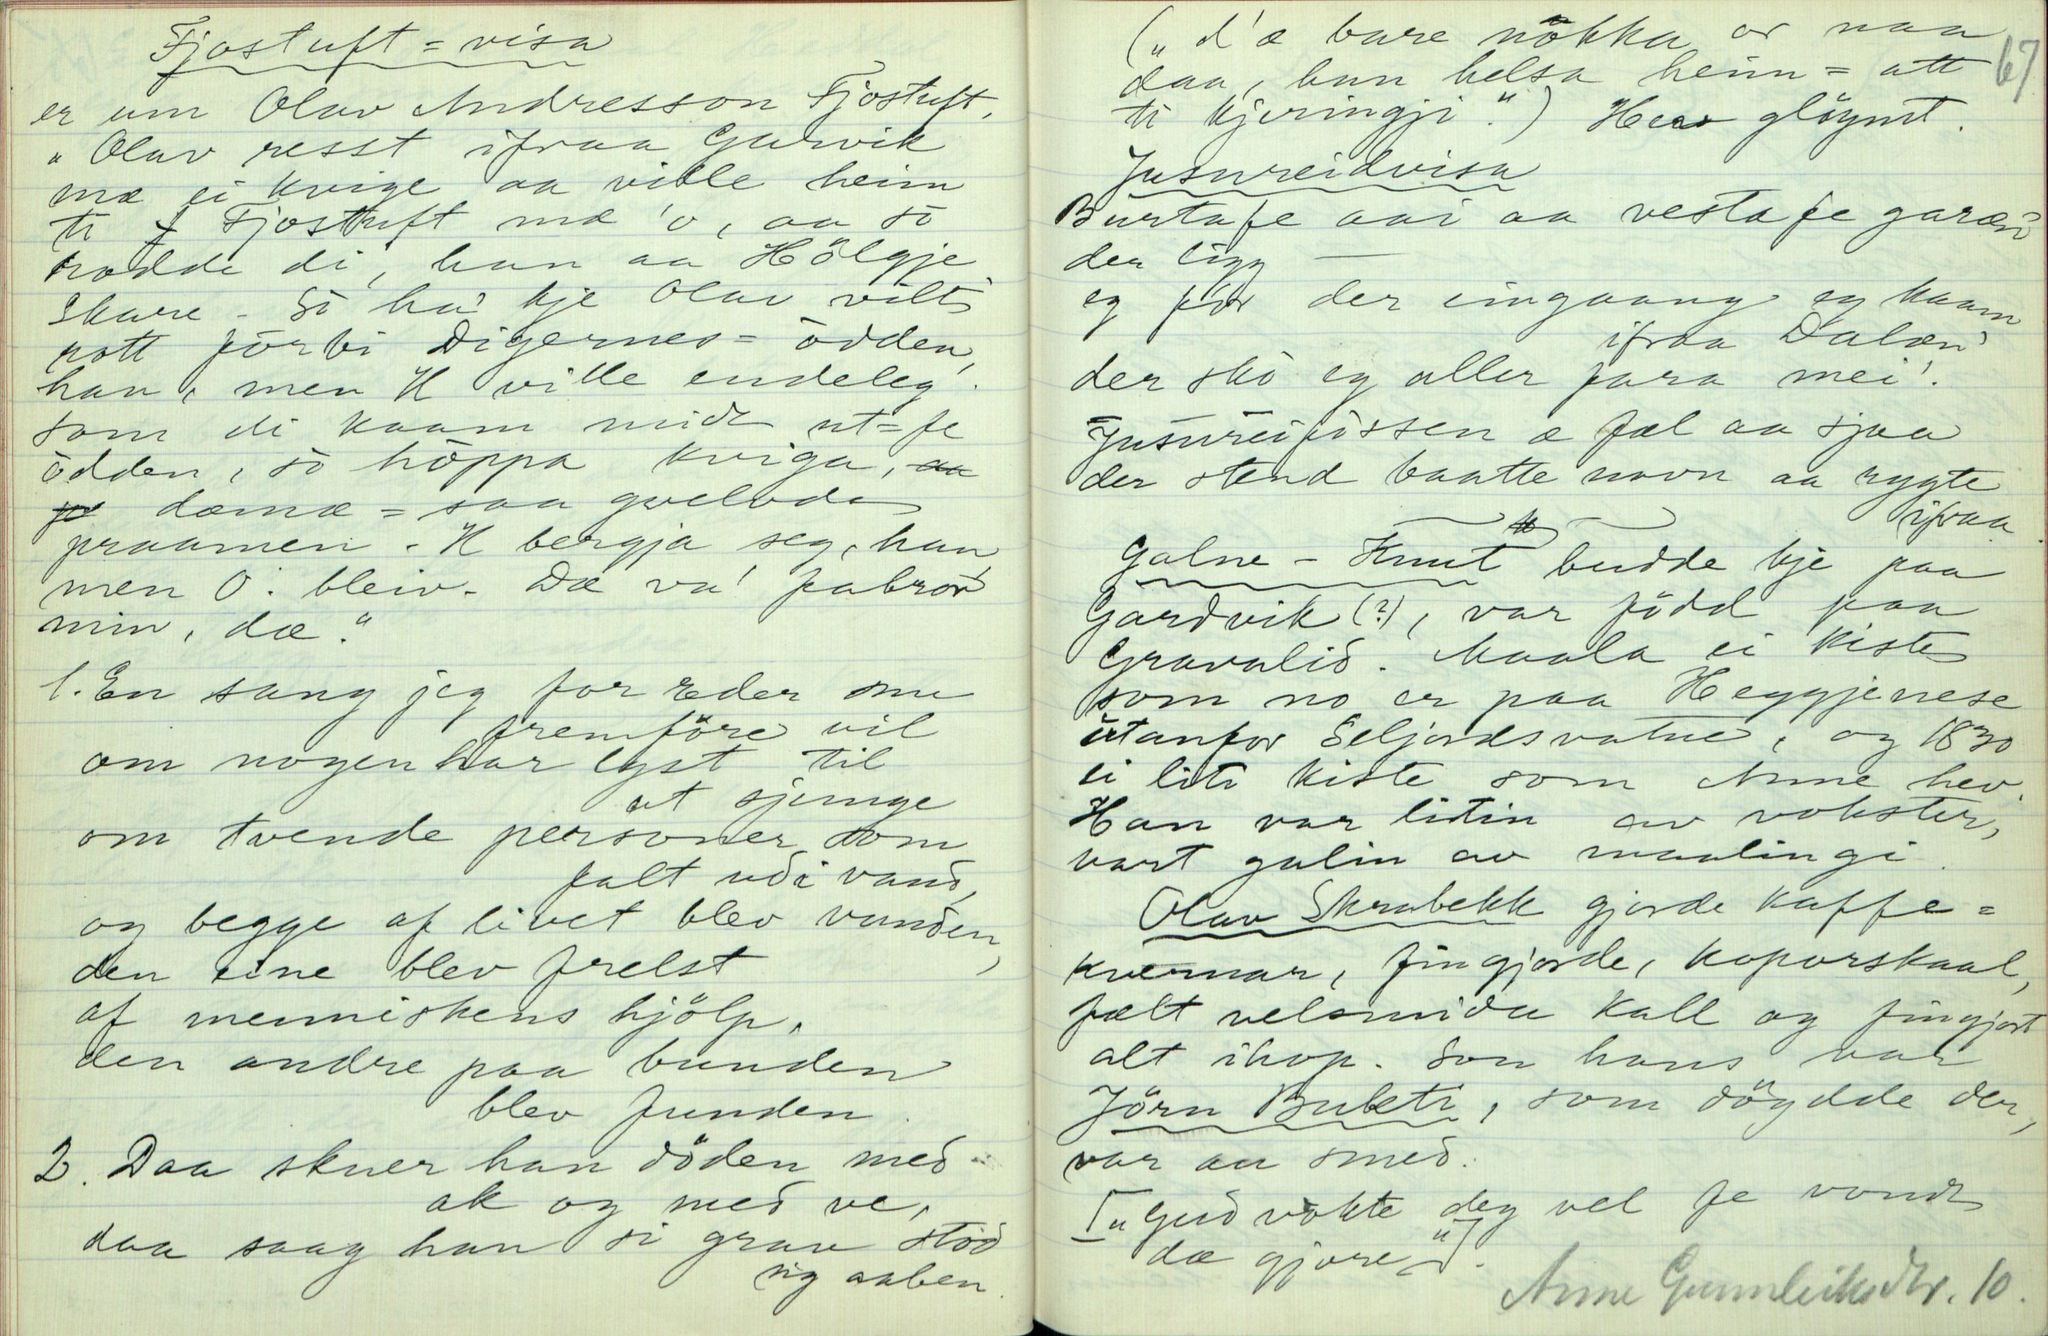 Fjostuft = visa
er um Olav Andresson Fjostuft.
"Olav resst ifraa Garvik
mæ ei kvige aa ville heim
ti Fjostuft mæ 'o, aa so
rodde di, han aa Hölgje
Skare - So ha' kje Olav vilt
rott förbi Digernes = ödden,
han, men H ville endeleg.
som di kaam midt ut = fe
ödden, so höppa kviga, aa
dæmæ = saa gvelvde
praamen - H bergja seg, han,
men O. bleiv. Dæ va' fabror
min, dæ."
1. En sang jeg for Eder nu
fremföre vil
om nogen har lyst til
at sjunge
om tvende personer som
falt udi vand,
og begge af livet blev vunden,
den eine blev frelst
af menniskens hjölp,
den andre paa bunden
blev funden.
2. Daa skuer han döden med
ak og med ve,
daa saag han si grav stod
sig aaben.
67
("d'æ bare nökka or naa
daa, han helsa heim = att
ti kjeringji.") Hev glöymt.
Jusureidvisa
Burtafe aai aa vestafe garæn
der ligg —
eg for der eingaang eg kaam
ifraa Dalæn
der sko eg aller fara mei'.
Jusureifossen æ fæl aa sjaa
der stend baatte navn aa rygte
ifraa
Galne - Knut budde kje paa
Gardvik (?), var född paa
Gravalid. Maala ei kiste
som no er paa Heggjenese
utanfor Seljordsvatne, og 1830
ei liti kiste som Anne hev.
Han var litin av vokster,
vart galin av maalingi.
Olav Skrabekk gjorde kaffe =
kvernar, fingjorde, koparskaal,
fælt velsmida kall og fingjort
alt ihop. Son hans var
Jörn Bukti, som döydde der,
var au smed.
["Gud vokte deg vel fe vondt
dæ gjore"].
Anne Gunnleiksdtr. 10.